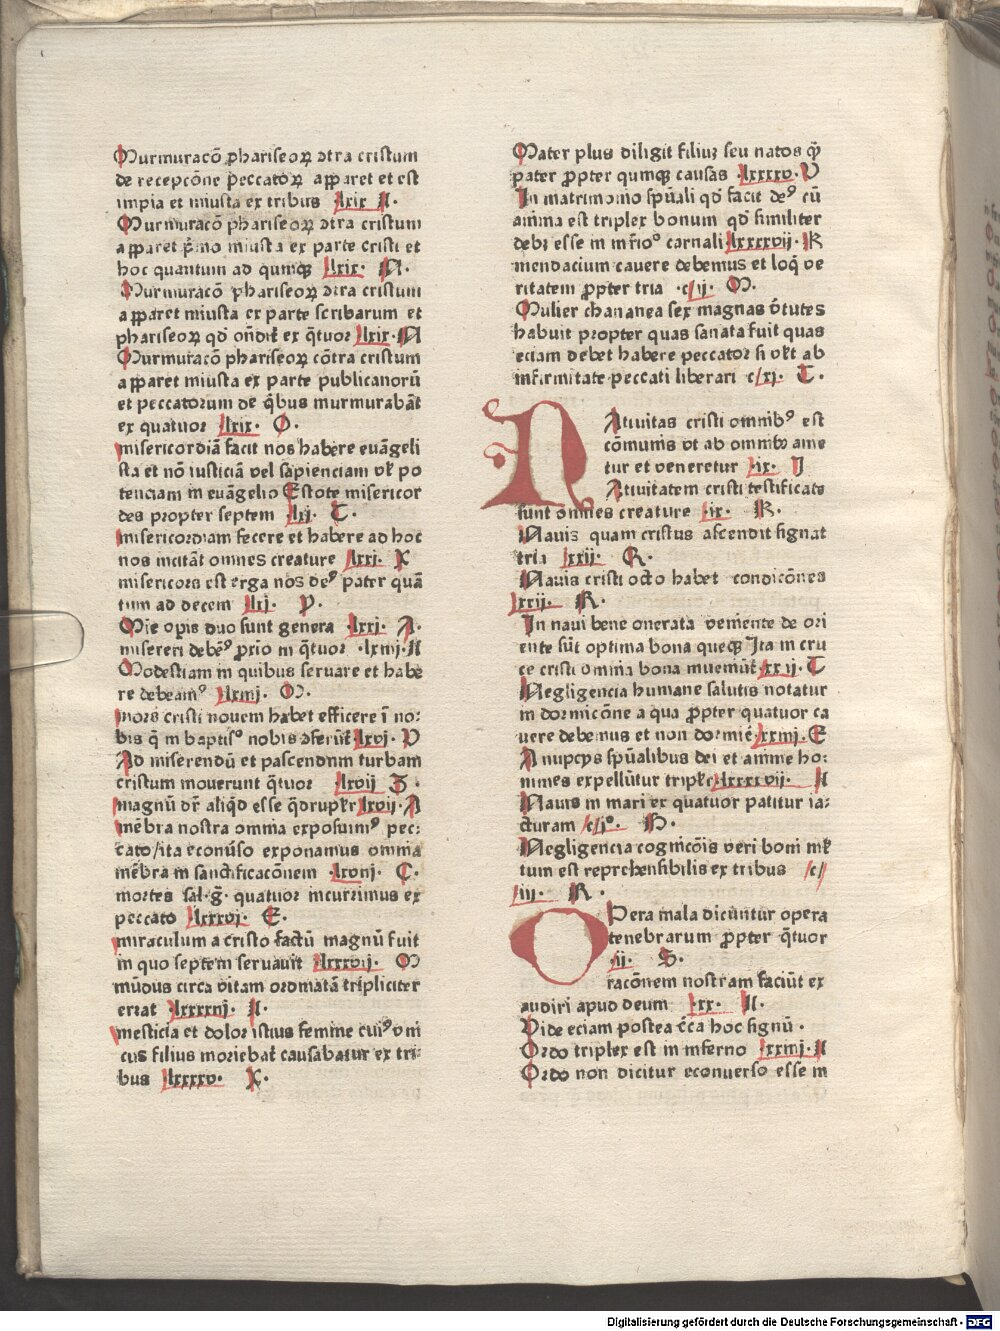 Murmuracō phariseoꝝ ↄtra cristum
de recepcōne peccatoꝝ apparet et est
impia et iniusta ex tribus lxix A.
Murmuracō phariseoꝝ ↄtra cristum
apparet pͥmo iniusta ex parte cristi et
hoc quantum ad qumqꝫ lxix. A.
Murmuracō phariseoꝝ ↄtra cristum
apparet miusta ex parte scribarum et
phariseoꝝ qd ondit ex qͣtuor lxix. A
Murmuracō phariseoꝝ cōtra cristum
apparet miusta ex parte publicanorū
et peccatorum de qͥbus murmurabāt
ex quatuor lxix. O.
misericordiā facit nos habere euāgeli
sta et nō iusticiā vel sapienciam vel po
tenciam in euāgelio Estote misericor
des propter septem lxj. T.
misericordiam fecere et habere ad hoc
nos incitāt omnes creature lxxj. X
misericors est erga nos deꝰ pater quā
tum ad decem lxj. P.
Mīe opis duo sunt genera lxxj. A.
misereri debemꝰ pꝛio in qͣtuor .lxiiij. A
Modestiam in quibus seruare et habe
re debeamꝰ lxiiij. M.
mors cristi nouem habet efficere ī no:
bis q̄ in baptisͦ nobis ↄferūt lxvj. V
Ad miserendū et pascendum turbam
cristum mouerunt qͣtuor lxvij Z.
magnū dr̄ aliqd esse qͣdruplr lxvij. A
mēbra nostra omnia exposuimꝰ pec:
cato/ita econūso exponamus omnia
mēbra in sanctificacōnem .lxviij. C.
mortes sal.g̅. quatuor incurrimus ex
peccato lxxxvj. E.
miraculum a cristo factū magnū fuit
in quo septem seruauit lxxxvij. M
mūdus circa vitam ordinatā tripliciter
errat lxxxxiij. A.
mesticia et dolor istius femine cuiꝰ vni
cus filius moriebat causabatur ex tri:
bus lxxxxv. X.
Mater plus diligit filiuꝫ seu natos qͣ
pater ꝓpter qumqꝫ causas .lxxxxv. V
In matrimonio spūali qd facit deꝰ cū
anima est triplex bonum qd similiter
debꝫ esse in mr̄ioͦ carnali lxxxxvij. R
mendacium cauere debemus et loqͥ ve
ritatem ꝓpter tria .cij. M.
Mulier chananea sex magnas v̄tutes
habuit propter quas sanata fuit quas
eciam debet habere peccator si vlt ab
infirmitate peccati liberari cxj. T.
NAtiuitas cristi omnibꝰ est
cōmunis vt ab omnibꝫ ame
tur et veneretur .ix. J
Atiuitatem cristi testificate
sunt omnes creature .ix. R.
Nauis quam cristus ascendit signat
tria lxxij. Q.
Nauis cristi octo habet condicōnes
lxxij. R.
In naui bene onerata veniente de ori
ente sūt optima bona queqꝫ Ita in cru
ce cristi omnia bona inuemūt xxij. T
Negligencia humane salutis notatur
in dormicōne a qua ꝓpter quatuor ca
uere debemus et non dormiē .xxiiij. E
A nupcys spūalibus dei et anime ho:
mines expellūtur triplr lxxxxvij. A
Nauis in mari ex quatuor patitur ia:
cturam cjͦ. H.
Negligencia cognicōis veri boni ml̄
tum est reprehensibilis ex tribus c
iij. R.
OPera mala dicuntur opera
tenebrarum ꝓpter qͣtuor
.ij. S.
racōnem nostram faciūt ex
audiri apud deum .xx. A.
Vide eciam postea cͥca hoc signū.
Ordo triplex est in inferno .xxiiij. A
Ordo non dicitur econuerso esse in
Digitalisierung gefördert durch die Deutsche Forschungsgemeinschaft - DFG